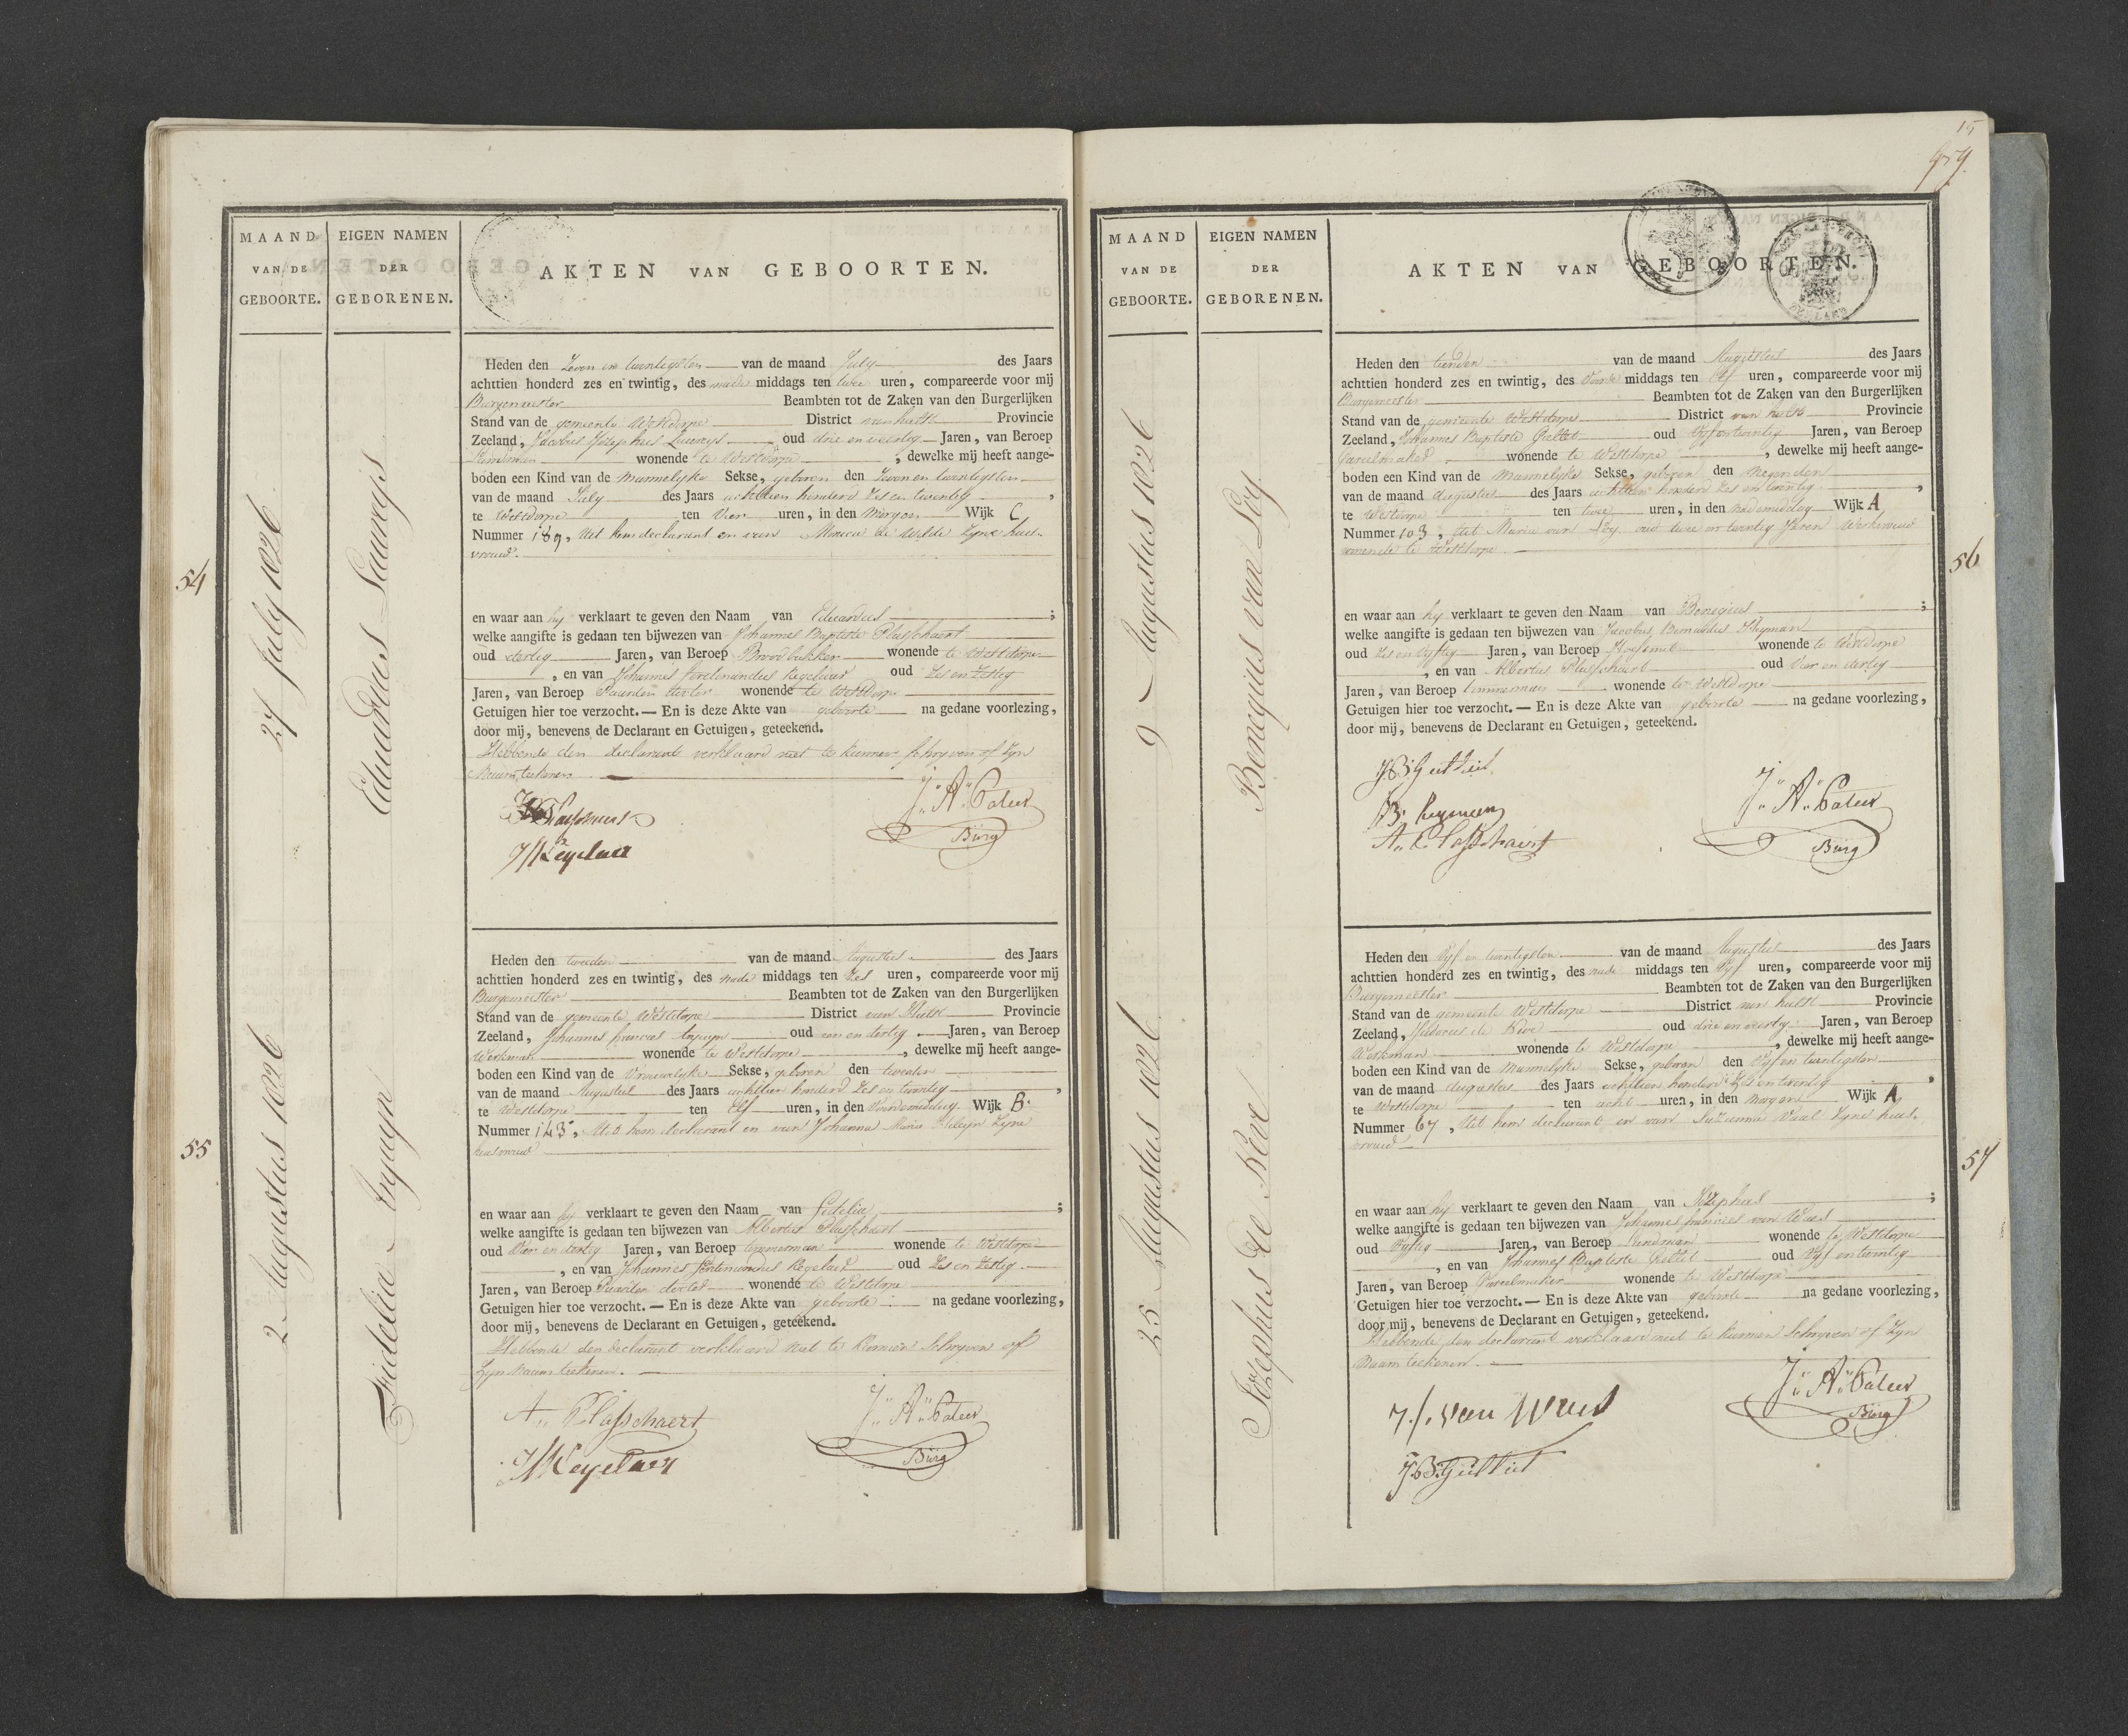 MAAND
VAN DE
GEBOORTE.
EIGEN NAMEN
DER
GEBORENEN.
AKTEN VAN GEBOORTEN.
54
27 July 1826
Eduardus Lauwys
Heden den Zeven en twentigsten van de maand July des Jaars
achttien honderd zes en twintig, des nade middags ten twee uren, compareerde voor mij
Burgemeester Beambten tot de Zaken van den Burgerlijken
Stand van de gemeente Westdorpe District van hulst Provincie
Zeeland, Jacobus Josephus Lauwys oud drie en veertig Jaren, van Beroep
wonende te Westdorpe, dewelke mij heeft aange-
boden een Kind van de Mannelyke Sekse, geboren den Zeven en twentigsten
van de maand July des Jaars achttien honderd zes en twentig,
te Westdorpe ten Vier uren, in den Morgen Wijk C
Nummer 189, Uit hem declarant en van Monica de Wilde Zyne huis-
vrouw.
en waar aan hy verklaart te geven den Naam van Eduardus;
welke aangifte is gedaan ten bijwezen van Johannes Baptiste Plasschaert
oud dertig Jaren, van Beroep Broodbakker wonende te Westdorpe
, en van Johannes ferdinandus Regelaer oud Zes en Zestig
Jaren, van Beroep Paarden docter wonende te Westdorpe
Getuigen hier toe verzocht. — En is deze Akte van geboorte na gedane voorlezing,
door mij, benevens de Declarant en Getuigen, geteekend.
Hebbende den declarant verklaard niet te kunnen schryven of Zyn
Naam teekenen.
J: A: Cateer
Burg
55
2 Augustus 1826
Fidelia Inguyn
Heden den tweeden van de maand Augustus des Jaars
achttien honderd zes en twintig, des nade middags ten Zes uren, compareerde voor mij
Burgemeester Beambten tot de Zaken van den Burgerlijken
Stand van de gemeente Westdorpe District van Hulst Provincie
Zeeland, Johannes francies Inguyn oud een en dertig Jaren, van Beroep
Werkman wonende te Westdorpe, dewelke mij heeft aange-
boden een Kind van de Vrouwelyke Sekse, geboren den tweeden
van de maand Augustus des Jaars achttien honderd Zes en twentig,
te Westdorpe ten Elf uren, in den Voordemiddag Wijk B.
Nummer 143, Uit hem declarant en van Johanna Maria Zyne
huisvrouw
en waar aan hy verklaart te geven den Naam van Fidelia;
welke aangifte is gedaan ten bijwezen van Albertus Plasschaert
oud Vier en dertig Jaren, van Beroep timmerman wonende te Westdorpe
, en van Johannes ferdinandus Regelaer oud Zes en Zestig
Jaren, van Beroep Paarden docter wonende te Westdorpe
Getuigen hier toe verzocht. — En is deze Akte van geboorte na gedane voorlezing,
door mij, benevens de Declarant en Getuigen, geteekend.
Hebbende den declarant verklaard niet te kunnen Schryven of
Zyn Naam teekenen.
A: Plasschaert
J: A: Cateer
Burg
15
MAAND
VAN DE
GEBOORTE.
EIGEN NAMEN
DER
GEBORENEN.
AKTEN VAN GEBOORTEN.
56
9 Augustus 1826
Benegius van Loy
Heden den tienden van de maand Augustus des Jaars
achttien honderd zes en twintig, des Voorde middags ten Elf uren, compareerde voor mij
Burgemeester Beambten tot de Zaken van den Burgerlijken
Stand van de gemeente Westdorpe District van hulst Provincie
Zeeland, Johannes Baptiste Gettet oud Vyf en twentig Jaren, van Beroep
Gareelmaker wonende te Westdorpe, dewelke mij heeft aange-
boden een Kind van de Mannelyke Sekse, geboren den Negenden
van de maand Augustus des Jaars achttien honderd Zes en twentig,
te Westdorpe ten twee uren, in den nademiddag Wijk A
Nummer 103, Uit Maria van Loy, oud twee en twentig Jaren Werkvrouw
wonende te Westdorpe.
en waar aan hy verklaart te geven den Naam van Benegius;
welke aangifte is gedaan ten bijwezen van Jacobus Bernardus Heyman
oud Zes en Vyftig Jaren, van Beroep Hoefsmid wonende te Westdorpe
, en van Albertus Plasschaert oud Vier en dertig
Jaren, van Beroep timmerman wonende te Westdorpe
Getuigen hier toe verzocht. — En is deze Akte van geboorte na gedane voorlezing,
door mij, benevens de Declarant en Getuigen, geteekend.
A: Plasschaert
J: A: Cateer
Burg
57
25 Augustus 1826
Josephus de Kève
Heden den Vyf en twentigsten van de maand Augustus des Jaars
achttien honderd zes en twintig, des nade middags ten Vyf uren, compareerde voor mij
Burgemeester Beambten tot de Zaken van den Burgerlijken
Stand van de gemeente Westdorpe District van hulst Provincie
Zeeland, de Kève oud drie en veertig Jaren, van Beroep
Werkman wonende te Westdorpe, dewelke mij heeft aange-
boden een Kind van de Mannelyke Sekse, geboren den Vyf en twentigsten
van de maand Augustus des Jaars achttien honderd Zes en twentig,
te Westdorpe ten acht uren, in den Morgen Wijk A
Nummer 67, Uit hem declarant en van Suzanna Zyne huis-
vrouw
en waar aan hy verklaart te geven den Naam van Josephus;
welke aangifte is gedaan ten bijwezen van Johannes francies van Waes
oud Vyftig Jaren, van Beroep wonende te Westdorpe
, en van Johannes Baptiste Gettet oud Vyf en twentig
Jaren, van Beroep Gareelmaker wonende te Westdorpe
Getuigen hier toe verzocht. — En is deze Akte van geboorte na gedane voorlezing,
door mij, benevens de Declarant en Getuigen, geteekend.
Hebbende den declarant verklaard niet te kunnen Schryven of Zyn
Naam teekenen.
J: A: Cateer
Burg